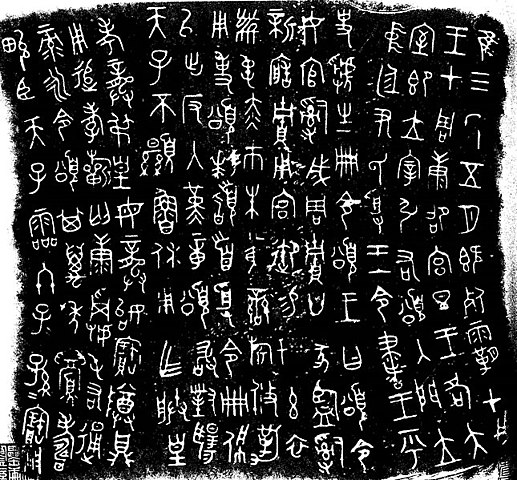 隹三年五月既死霸甲戌
王才周康卲宮旦王各大
室即立宰引右頌入門立中
廷尹氏受王令書王乎
史虢生冊令頌王曰頌令
女官𤔲成周賈廿家監𤔲
新造賈用宮御易女玄衣
黹屯赤巿朱黃鑾旂攸勒
用事頌拜𩒨首受令冊佩
㠯出反入堇章頌敢對揚
天子不顯魯休用乍朕皇
考龏弔皇母龏始寶尊鼎
用追孝𣄨匄康𠷎屯右通
彔永令頌其萬年眉壽
畯臣天子霝冬子孫寶用